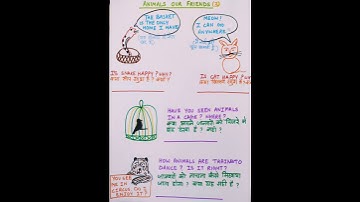 ANIMALS OUR FRIENDS
THE BASKET
IS THE ONLY
HOME I HAVE
MEOW!
I CAN GO
ANYWHERE
IS SNAKE HAPPY? WHY?
क्या साँप खुश है? क्यों?
IS CAT HAPPY? WHY?
क्या बिल्ली खुश है? क्यों?
HAVE YOU SEEN ANIMALS
IN A CAGE? WHERE?
क्या आपने जानवरों को पिंजरे में
बंद देखा है? कहाँ?
YOU SEE
ME IN
CIRCUS, DO I
ENJOY IT?
HOW ANIMALS ARE TAUGHT TO
DANCE? IS IT RIGHT?
जानवरों को नाचना कैसे सिखाया
जाता होगा? क्या यह सही है?